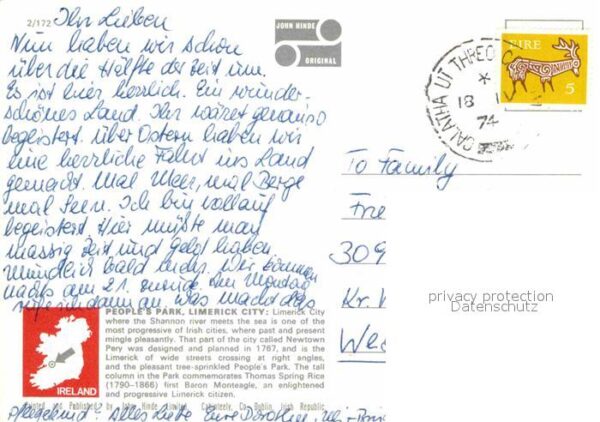 2/172
Ihr Lieben
JOHN HINDE
ORIGINAL
Nun haben wir schon
über die Hälfte der Zeit um.
Es ist hier herrlich. Ein wunder-
schönes Land. Ihr wäret genauso
begeistert. Über Ostern haben wir
eine herrliche Fahrt ins Land
gemacht. Mal Meer, mal Berge
mal Seen. Ich bin vollauf
begeistert. Hier müßte man
massig Zeit und Geld haben
bald mehr. Wir kommen
nachts am 21. zurück. Am Montag
rufe ich dann an. Was macht das
Pflegekind? Alles Liebe Eure
EIRE
5
GALATHA UT THREO
18 IV
74
To Family
Fre
309
Kr.
We
privacy protection
Datenschutz
IRELAND
PEOPLE'S PARK, LIMERICK CITY: Limerick City
where the Shannon river meets the sea is one of the
most progressive of Irish cities, where past and present
mingle pleasantly. That part of the city called Newtown
Pery was designed and planned in 1767, and is the
Limerick of wide streets crossing at right angles,
and the pleasant tree-sprinkled People's Park. The tall
column in the Park commemorates Thomas Spring Rice
(1790-1866) first Baron Monteagle, an enlightened
and progressive Limerick citizen.
Printed and Published by John Hinde Limited, Cabinteely, Co Dublin, Irish Republic